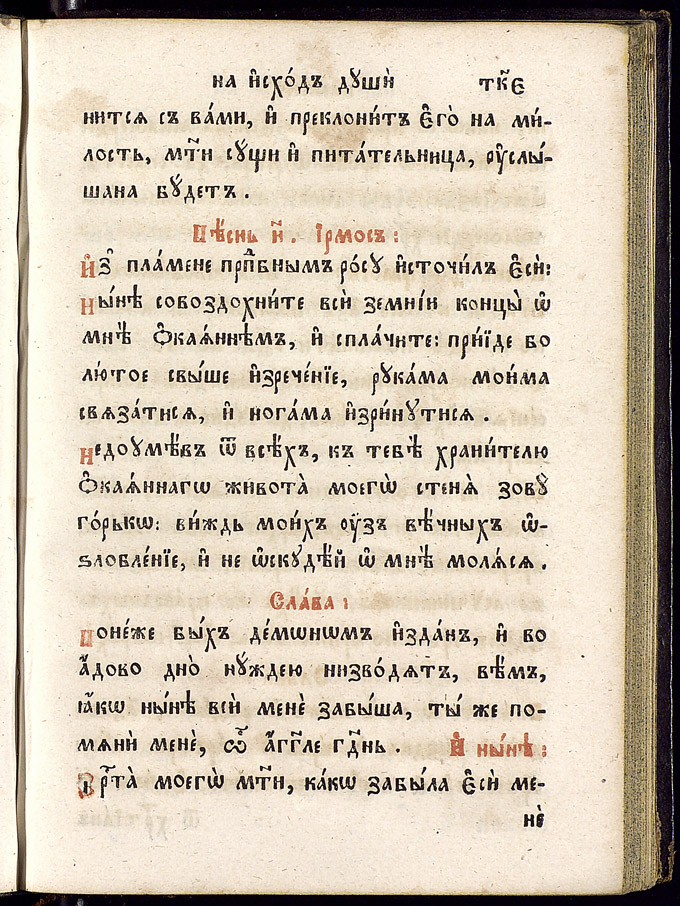 на и҆схо́дъ дꙋшѝ тк҃є
нитсѧ съ ва́ми, и҆ преклони́тъ є҆го̀ на ми́-
лость, мт҃и сꙋщи и҆ пита́тельница, ᲂу҆слы́-
шана бꙋ́детъ.
Пѣ́снь и҃. І҆рмосъ:
И҆з̾ пла́мене прпⷣбнымъ ро́сꙋ и҆сточи́лъ є҆сѝ:
Ны́нѣ совоздохни́те всѝ земні́и концы̀ ѡ҆
мнѣ̀ ѻ҆каѧ́ннѣмъ, и҆ спла́чите: прїи́де бо
лю́тое свы́ше и҆зрече́нїе, рꙋка́ма мои́ма
свѧза́тисѧ, и҆ нога́ма и҆зри́нꙋтисѧ.
Недоꙋмѣ́въ ѿ всѣ́хъ, къ тебѣ̀ храни́телю
ѻ҆каѧ́ннагѡ живота̀ моегѡ̀ стенѧ̀ зовꙋ̀
го́рькѡ: ви́ждь мои́хъ ᲂу҆́зъ вѣ́чныхъ ѡ҆-
ѕлобле́нїе, и҆ не ѡ҆скꙋдѣ́й ѡ҆ мнѣ̀ молѧ́сѧ.
Сла́ва:
Поне́же бы́хъ де́мѡнѡмъ и҆́зданъ, и҆ во
а҆́дово дно̀ нꙋ́ждею низво́дѧтъ, вѣ́мъ,
ꙗ҆́кѡ ны́нѣ всѝ менѐ забы́ша, ты́ же по-
мѧнѝ менѐ, ѽ а҆́гг҃ле гдⷭ҇нь. И҆ ны́нѣ:
Хрⷭ҇та̀ моегѡ̀ мт҃и, ка́кѡ забы́ла є҆сѝ ме-
нѐ